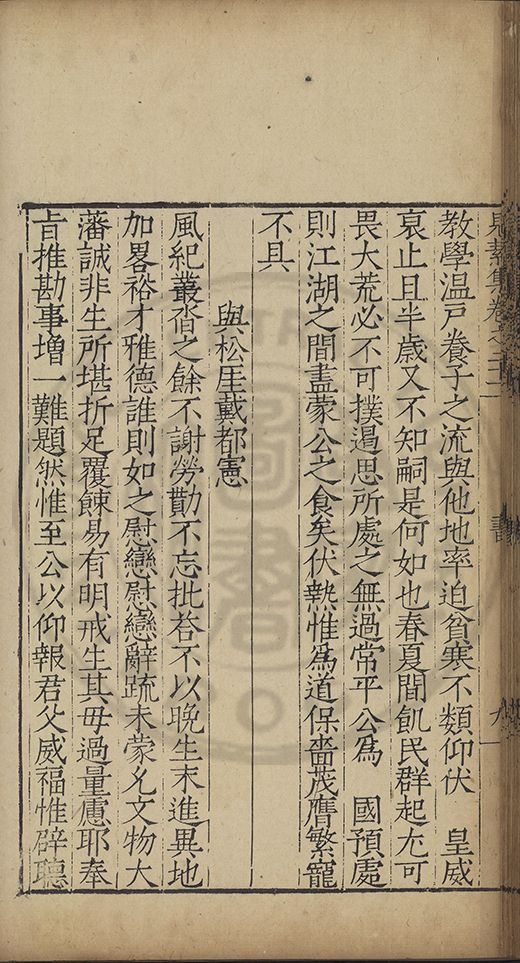 見素集卷之二十二
書
九
教學温戸養子之流與他地率迫貧寒不類仰伏　皇威
哀止且半歳又不知嗣是何如也春夏間飢民群起尢可
畏大荒必不可撲遏思所處之無過常平公爲　國預處
則江湖之間盡蒙公之食矣伏熱惟爲道保嗇茂膺繁寵
不具
與松厓戴都憲
風紀叢沓之餘不謝勞勩不忘批荅不以晩生末進異地
加畧裕才雅德誰則如之慰戀慰戀辭疏未蒙允文物大
藩誠非生所堪折足覆餗易有明戒生其毋過量慮耶奉
㫖推勘事增一難題然惟至公以仰報君父威福惟辟聽